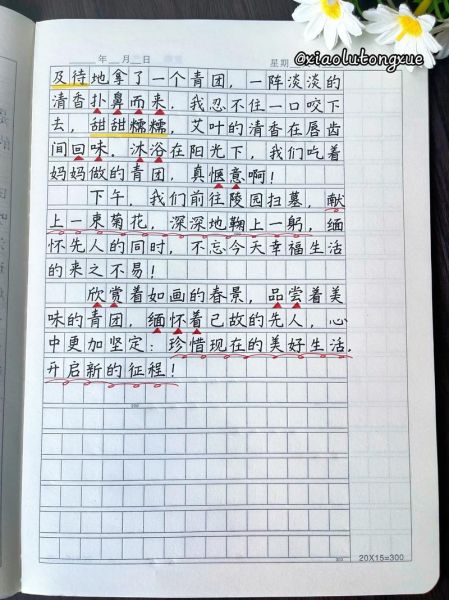 @xiaolutongxue
年 月 日 星期
及待地拿了一个青团，一阵淡淡的
清香扑鼻而来，我忍不住一口咬下
去，甜甜糯糯，艾叶的清香在唇齿
间回味。沐浴在阳光下，我们吃着
妈妈做的青团，真惬意啊！
下午，我们前往陵园扫墓，献
上一束菊花，深深地鞠上一躬，缅
怀先人的同时，不忘今天幸福生活
的来之不易！
欣赏着如画的春景，品尝着美
味的青团，缅怀着已故的先人，心
中更加坚定：珍惜现在的美好生活，
开启新的征程！
200
300
20X15=300